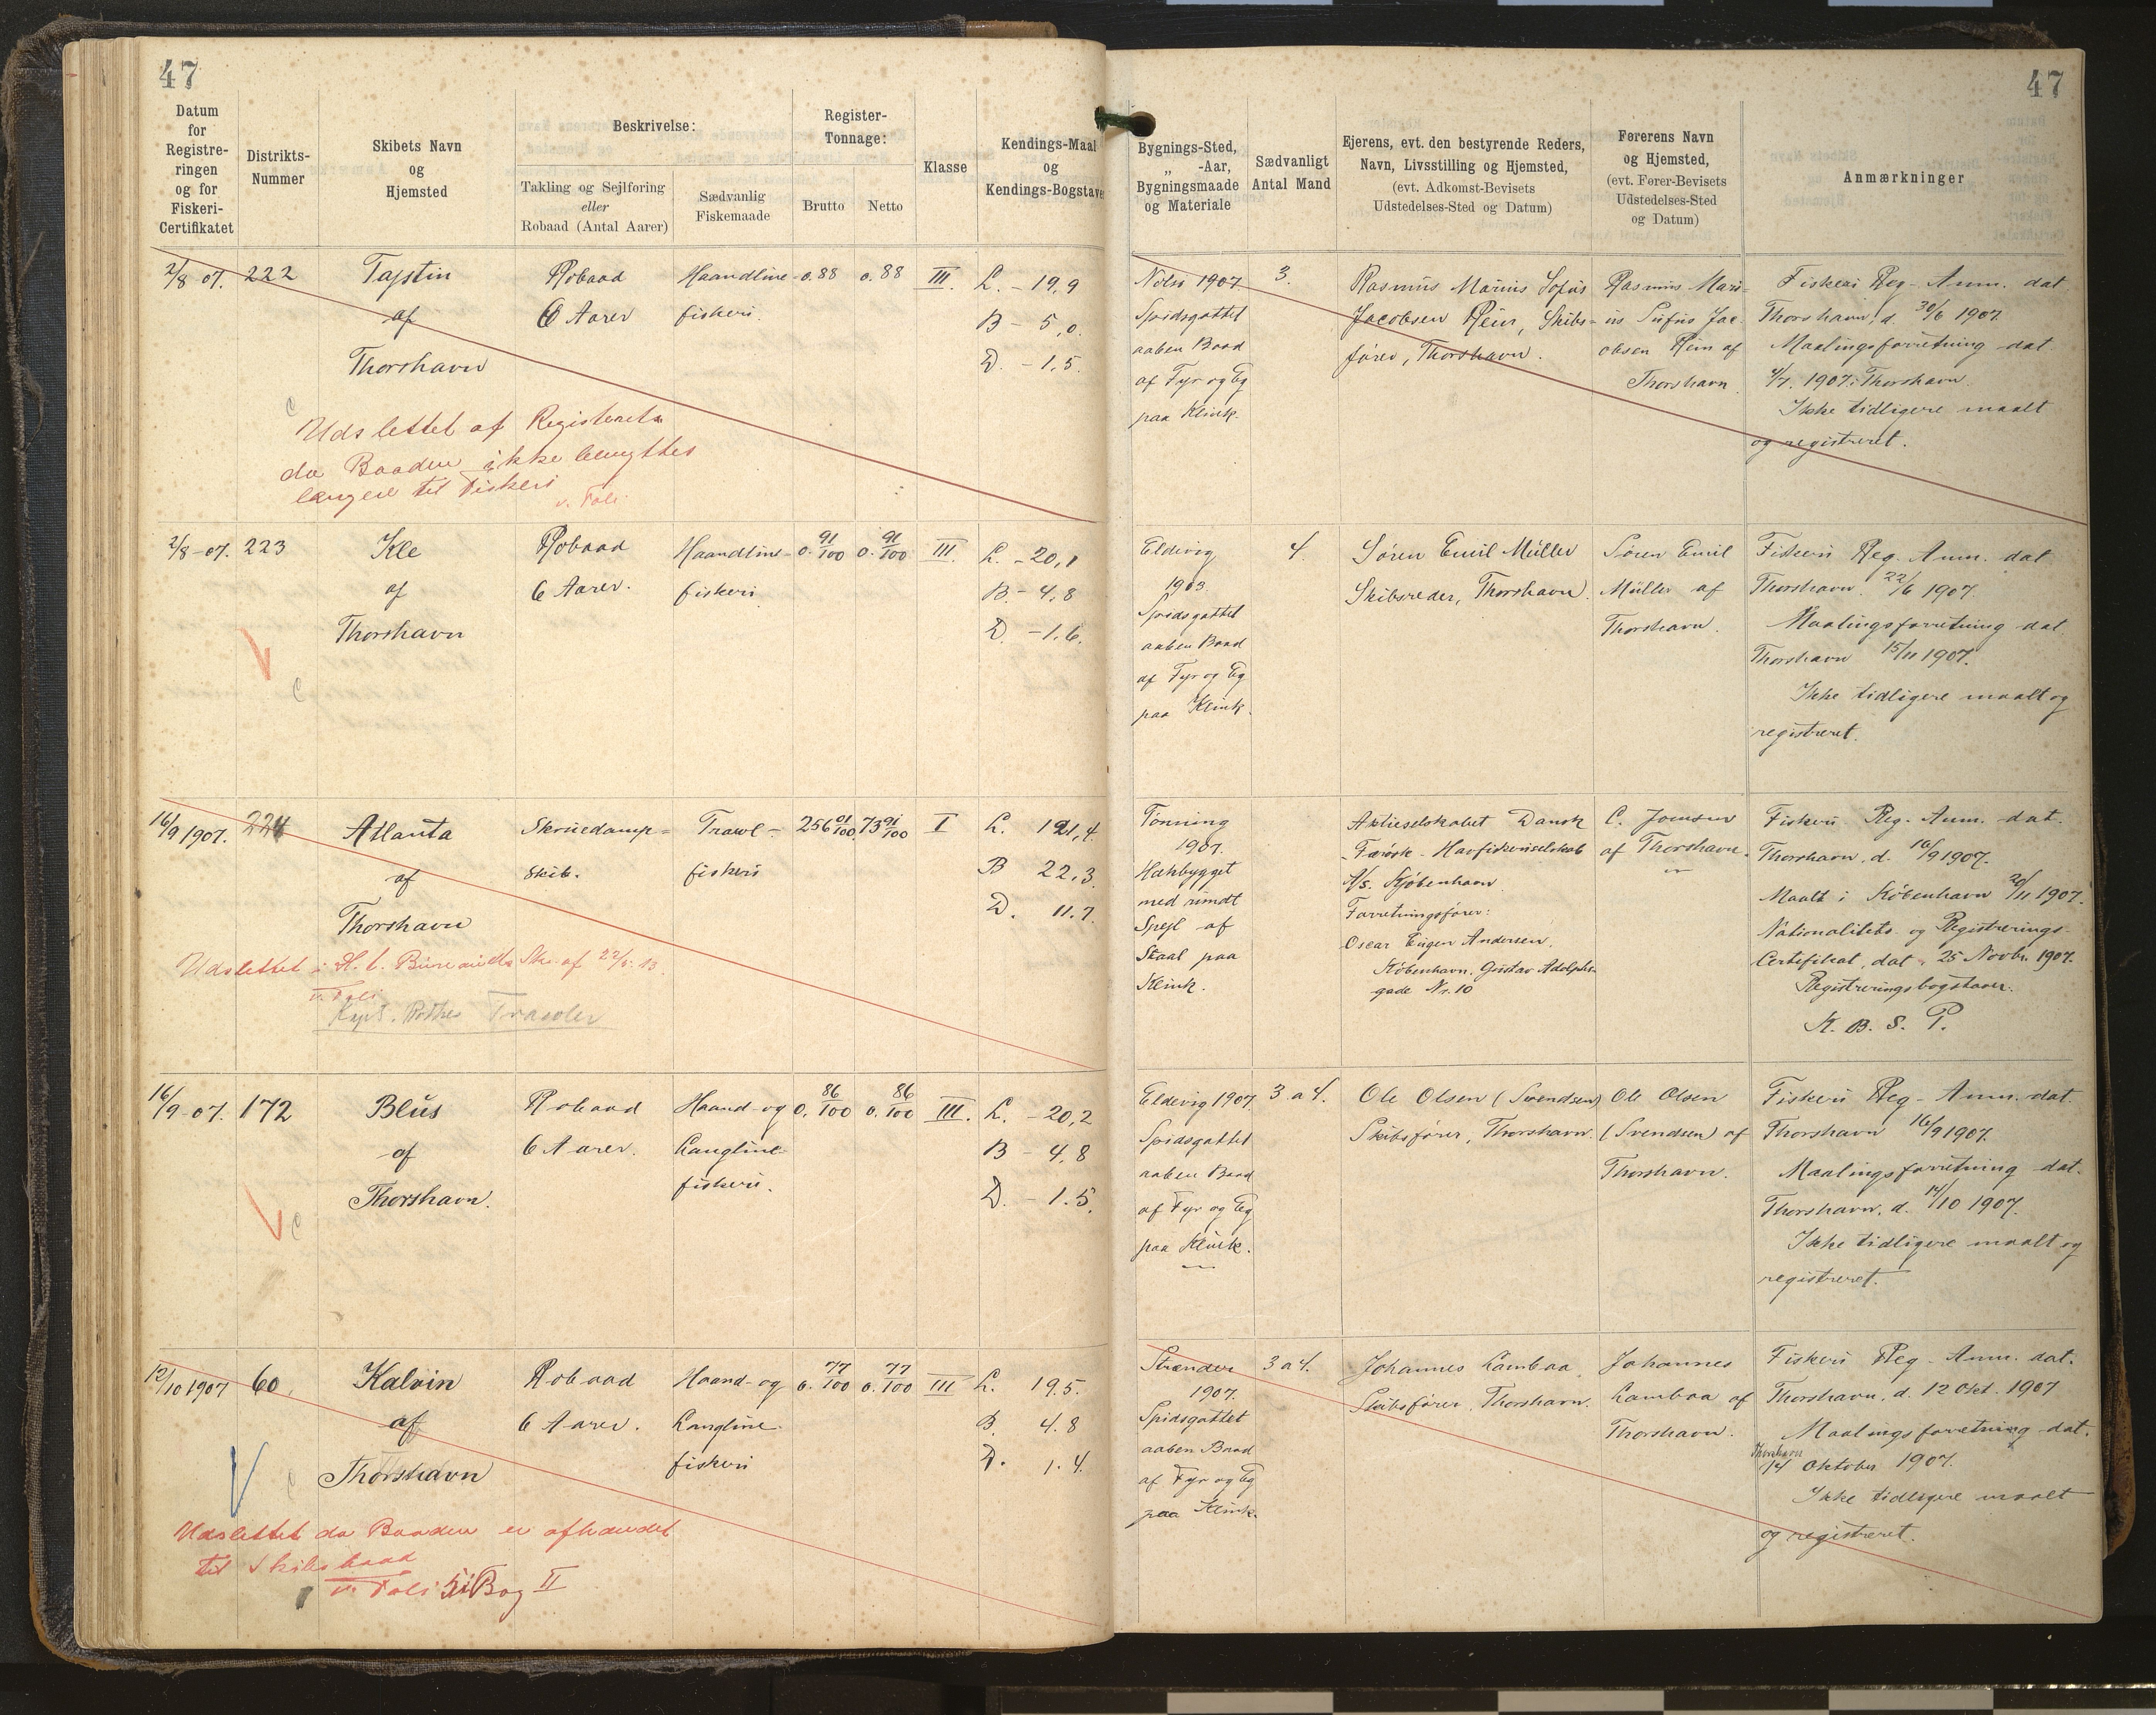 47
47
Datum
for
Registre-
ringen
og for
Fiskeri-
Certifikatet
Distrikts-
Nummer
Skibets Navn
og
Hjemsted
Beskrivelse:
Takling og Sejlføring
eller
Robaad (Antal Aarer)
Sædvanlig
Fiskemaade
Register-
Tonnage:
Brutto
Netto
Klasse
Kendings-Maal
og
Kendings-Bogstaver
Bygnings-Sted,
„ -Aar,
Bygningsmaade
og Materiale
Sædvanligt
Antal Mand
Ejerens, evt. den bestyrende Reders,
Navn, Livsstilling og Hjemsted,
(evt. Adkomst-Bevisets
Udstedelses-Sted og Datum)
Førerens Navn
og Hjemsted,
(evt. Fører-Bevisets
Udstedelses-Sted
og Datum)
Anmærkninger
2/8 07.
222
af
Thorshavn
Robaad
6 Aarer
Haandline-
fiskeri.
0.88
0.88
III.
L. - 19,9
B - 5,0
D. - 1,5.
Nolsø 1907
Spidsgattet
aaben Baad
af Fyr og Eg
paa Klink.
3.
Rasmus Marius Sofus
Jacobsen Rein, Skibs-
fører, Thorshavn.
Rasmus Mari-
us Sufus Jac-
obsen Rein af
Thorshavn.
Fiskeri Reg- Anm. dat.
Thorshavn, d. 30/6 1907
Maalingsforretning dat
1907 Thorshavn.
Ikke tidligere maalt
og registreret.
Udslettet af Registeret
da Baaden ikke benyttes
længere til Fiskeri
v. Foli
2/8-07.
223
Kle
af
Thorshavn
Robaad
6 Aarer.
Haandline-
fiskeri
0. 91/100
0. 91/100
III.
L. - 20,1
B. - 4,8
D. - 1,6.
Eldevig
1903.
Spidsgattet
aaben Baad
af Fyr og Eg
paa Klink.
4.
Søren Emil Müller
Skibsreder, Thorshavn.
Søren Emil
Müller af
Thorshavn.
Fiskeri Reg. Anm. dat
Thorshavn. 22/6 1907.
Maalingsforretning dat.
Thorshavn 15/11 1907.
Ikke tidligere maalt og
registreret.
16/9 1907.
224
Atlanta
af
Thorshavn
Skruedamp-
skib.
Trawl-
fiskeri
256 01/100
73 91/100
I
L. 121,4
B 22,3.
D. 11.7.
Tønning
1907.
Hækbygget
med rundt
Spejl af
Staal paa
Klink.
Aktieselskabet Dansk
-Færøsk- Havfiskeriselskab
A/s. Kjøbenhavn.
Forretningsfører:
Oscar Eugen Andersen.
København. Gustav Adolphs-
gade Nr. 10
C. Joensen
af Thorshavn.
Fiskeri Reg- Anm. dat.
Thorshavn, d. 16/9 1907.
Maalt i København 20/11 1907.
Nationalitets- og Registrerings-
Certifikat, dat. 25 Novbr. 1907.
Registreringsbogstaver.
K. B. S. P.
Udslettet i Skr. af 22/5. 13.
v. Foli
Kapt. Trawler
16/9-07.
172
Blus
af
Thorshavn.
Robaad
6 Aarer.
Haand- og
Langline
fiskeri.
0. 86/100
0. 86/100
III.
L. - 20,2
B - 4,8
D. - 1.5.
Eldevig 1907
Spidsgattet
aaben Baad
af Fyr og Eg
paa Klink.
3 a 4.
Ole Olsen (Svendsen)
Skibsfører, Thorshavn.
Ole Olsen
(Svendsen) af
Thorshavn.
Fiskeri Reg- Anm. dat.
Thorshavn 16/9 1907.
Maalingsforretning dat.
Thorshavn, d. 14/10 1907.
Ikke tidligere maalt og
registreret.
12/10 1907
60.
Kalvin
af
Thorshavn
Robaad
6 Aarer.
Haand- og
Langline
fiskeri
0. 77/100
0. 77/100
III
L. 19.5.
B. 4.8
D. 1.4.
Strænder
1907.
Spidsgattet
aaben Baad
af Fyr og Eg
paa Klink.
3 a 4.
Johannes Lambaa
Skibsfører, Thorshavn.
Johannes
Lambaa af
Thorshavn.
Fiskeri Reg- Anm. dat.
Thorshavn, d. 12 Okt. 1907
Maalingsforretning dat.
Thorshavn
14 Oktober 1907.
Ikke tidligere maalt
og registreret.
Udslettet da Baaden er afhændet
til Skibsbaad
v. Foli 51 Bog II